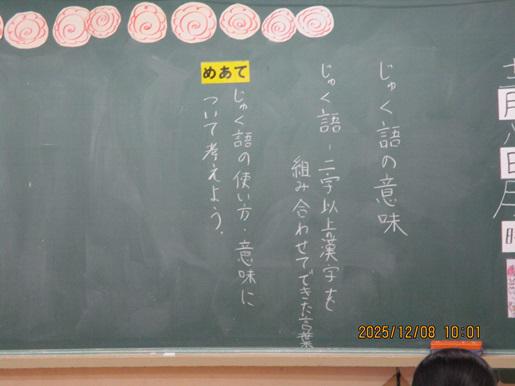 じゅく語の意味
じゅく語－二字以上の漢字を
組み合わせてできた言葉
めあて
じゅく語の使い方・意味に
ついて考えよう。
2025/12/08 10:01